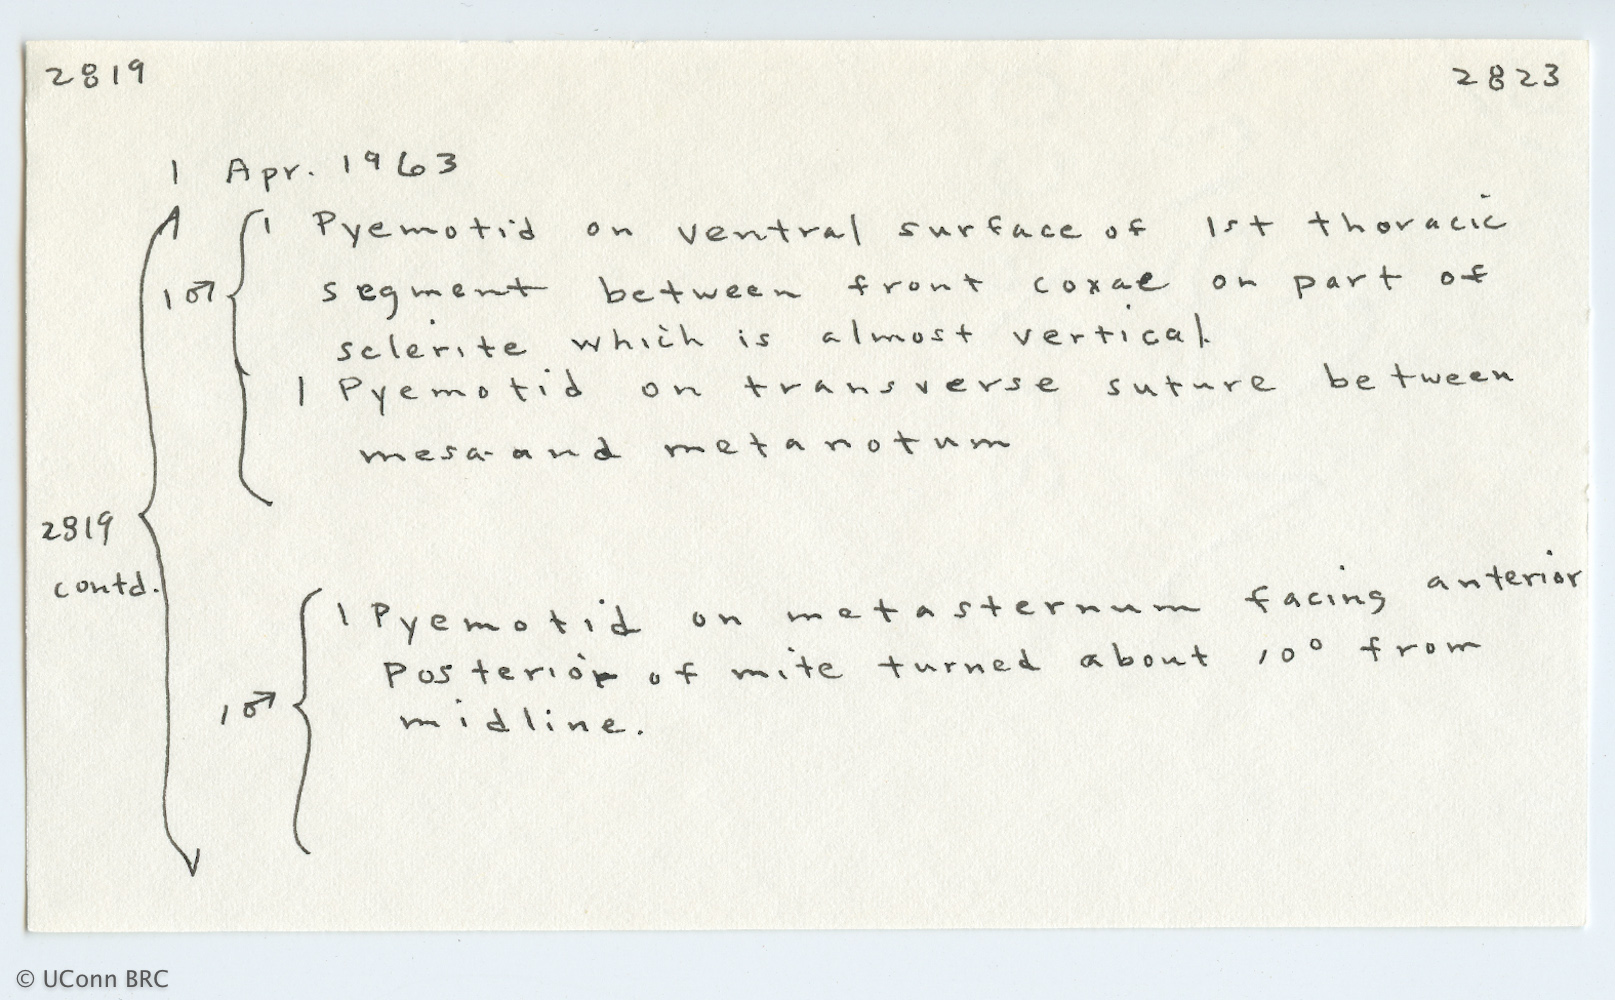 2819 2823
1 Apr. 1963
1 Pyemotid on ventral surface of 1st thoracic
1♂ segment between front coxae on part of
sclerite which is almost vertical.
1 Pyemotid on transverse suture between
mesa-and metanotum
2819
contd.
1 Pyemotid on metasternum facing anterior
Posterior of mite turned about 10° from
1♂ midline.
© UConn BRC